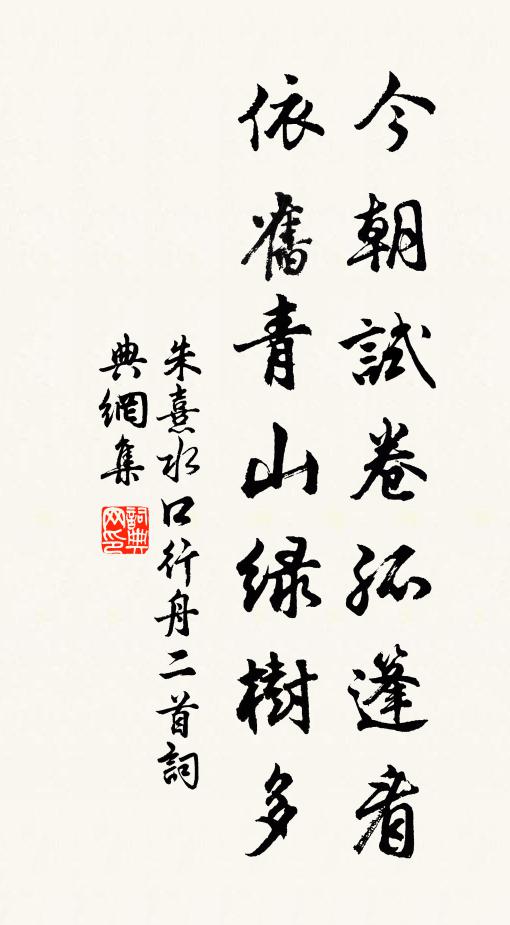 今朝試卷孤篷看
依舊青山綠樹多
朱熹水口行舟二首詞
典網集
詞典网印